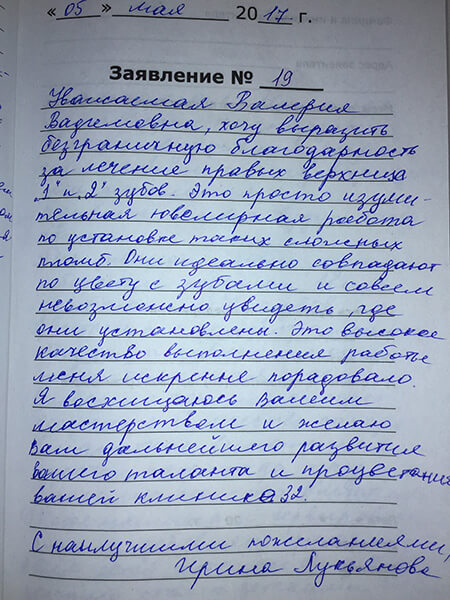 « 05 » мая 2017 г.
Заявление № 19
Уважаемая Валерия
Вадимовна, хочу выразить
безграничную благодарность
за лечение правых верхних
„1" и „2" зубов. Это просто изуми-
тельная ювелирная работа
по установке таких сложных
пломб. Они идеально совпадают
по цвету с зубами и совсем
невозможно увидеть, где
они установлены. Это высокое
качество выполнения работы
меня искренне порадовало.
Я восхищаюсь Вашим
мастерством и желаю
Вам дальнейшего развития
вашего таланта и процветания
вашей клинике 32.
С наилучшими пожеланиями,
Ирина Лукьянова